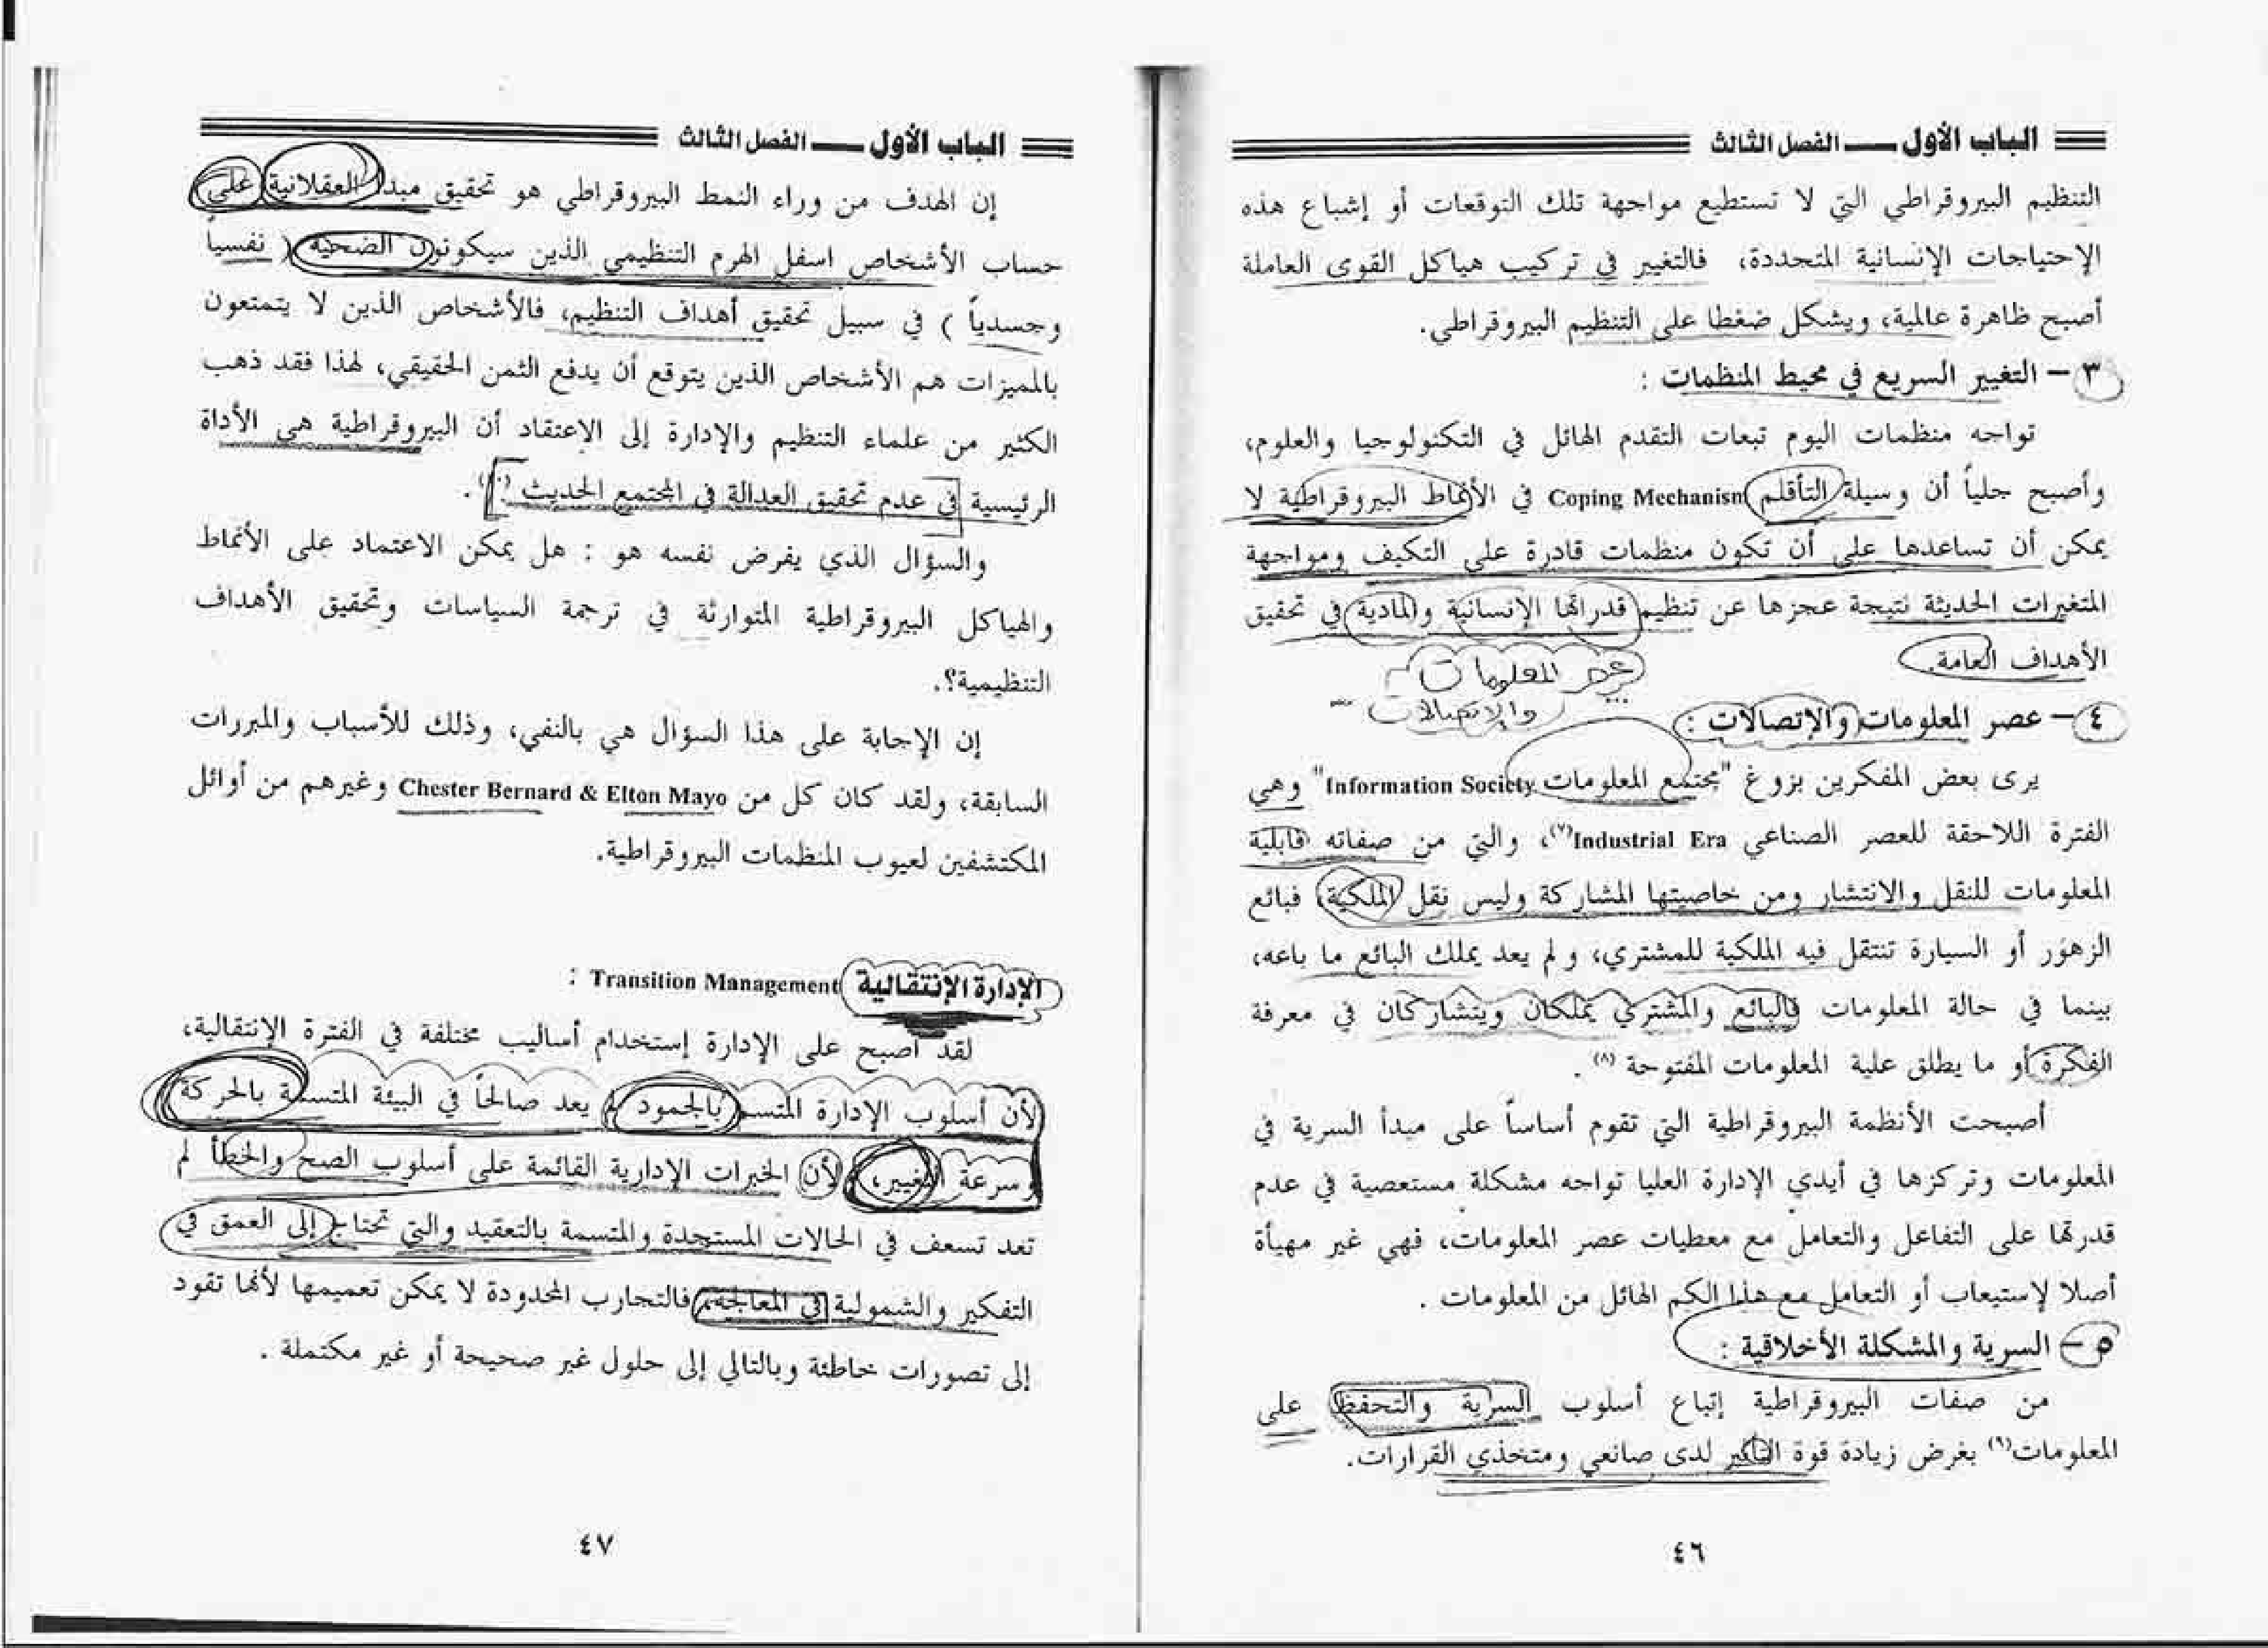 الباب الأول — الفصل الثالث
التنظيم البيروقراطي التي لا تستطيع مواجهة تلك التوقعات أو إشباع هذه
الإحتياجات الإنسانية المتجددة، فالتغيير في تركيب هياكل القوى العاملة
أصبح ظاهرة عالمية، ويشكل ضغطا على التنظيم البيروقراطي.
٣ – التغيير السريع في محيط المنظمات :
تواجه منظمات اليوم تبعات التقدم الهائل في التكنولوجيا والعلوم،
وأصبح جلياً أن وسيلة التأقلم Coping Mechanism في الأنماط البيروقراطية لا
يمكن أن تساعدها على أن تكون منظمات قادرة على التكيف ومواجهة
المتغيرات الحديثة نتيجة عجزها عن تنظيم قدراتها الإنسانية والمادية في تحقيق
الأهداف العامة.
عصر المعلومات
والإتصالات
٤ – عصر المعلومات والإتصالات :
يرى بعض المفكرين بزوغ "مجتمع المعلومات Information Society" وهي
الفترة اللاحقة للعصر الصناعي Industrial Era(٧)، والتي من صفاته قابلية
المعلومات للنقل والانتشار ومن خاصيتها المشاركة وليس نقل الملكية، فبائع
الزهور أو السيارة تنتقل فيه الملكية للمشتري، ولم يعد يملك البائع ما باعه،
بينما في حالة المعلومات فالبائع والمشتري يملكان ويتشاركان في معرفة
الفكرة أو ما يطلق علية المعلومات المفتوحة (٨) .
أصبحت الأنظمة البيروقراطية التي تقوم أساساً على مبدأ السرية في
المعلومات وتركزها في أيدي الإدارة العليا تواجه مشكلة مستعصية في عدم
قدرتها على التفاعل والتعامل مع معطيات عصر المعلومات، فهي غير مهيأة
أصلا لإستيعاب أو التعامل مع هذا الكم الهائل من المعلومات .
٥ – السرية والمشكلة الأخلاقية :
من صفات البيروقراطية إتباع أسلوب السرية والتحفظ على
المعلومات(٩) بغرض زيادة قوة التأثير لدى صانعي ومتخذي القرارات.
٤٦
الباب الأول — الفصل الثالث
إن الهدف من وراء النمط البيروقراطي هو تحقيق مبدأ العقلانية على
حساب الأشخاص اسفل الهرم التنظيمي الذين سيكونون الضحية ( نفسيا
وجسدياً ) في سبيل تحقيق أهداف التنظيم، فالأشخاص الذين لا يتمتعون
بالمميزات هم الأشخاص الذين يتوقع أن يدفع الثمن الحقيقي، لهذا فقد ذهب
الكثير من علماء التنظيم والإدارة إلى الإعتقاد أن البيروقراطية هي الأداة
الرئيسية في عدم تحقيق العدالة في المجتمع الحديث (١٠).
والسؤال الذي يفرض نفسه هو : هل يمكن الاعتماد على الأنماط
والهياكل البيروقراطية المتوارثة في ترجمة السياسات وتحقيق الأهداف
التنظيمية؟.
إن الإجابة على هذا السؤال هي بالنفي، وذلك للأسباب والمبررات
السابقة، ولقد كان كل من Chester Bernard & Elton Mayo وغيرهم من أوائل
المكتشفين لعيوب المنظمات البيروقراطية.
الإدارة الإنتقالية Transition Management :
لقد أصبح على الإدارة إستخدام أساليب مختلفة في الفترة الإنتقالية،
لأن أسلوب الإدارة المتسم بالجمود لم يعد صالحاً في البيئة المتسمة بالحركة
وسرعة التغيير، لأن الخبرات الإدارية القائمة على أسلوب الصح والخطأ لم
تعد تسعف في الحالات المستجدة والمتسمة بالتعقيد والتي تحتاج إلى العمق في
التفكير والشمولية في المعالجة، فالتجارب المحدودة لا يمكن تعميمها لأنها تقود
إلى تصورات خاطئة وبالتالي إلى حلول غير صحيحة أو غير مكتملة .
٤٧